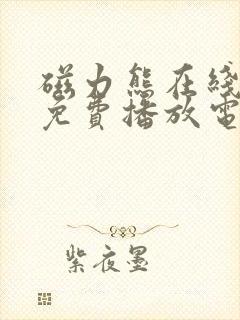 磁力熊在线
免費播放電
紫夜墨